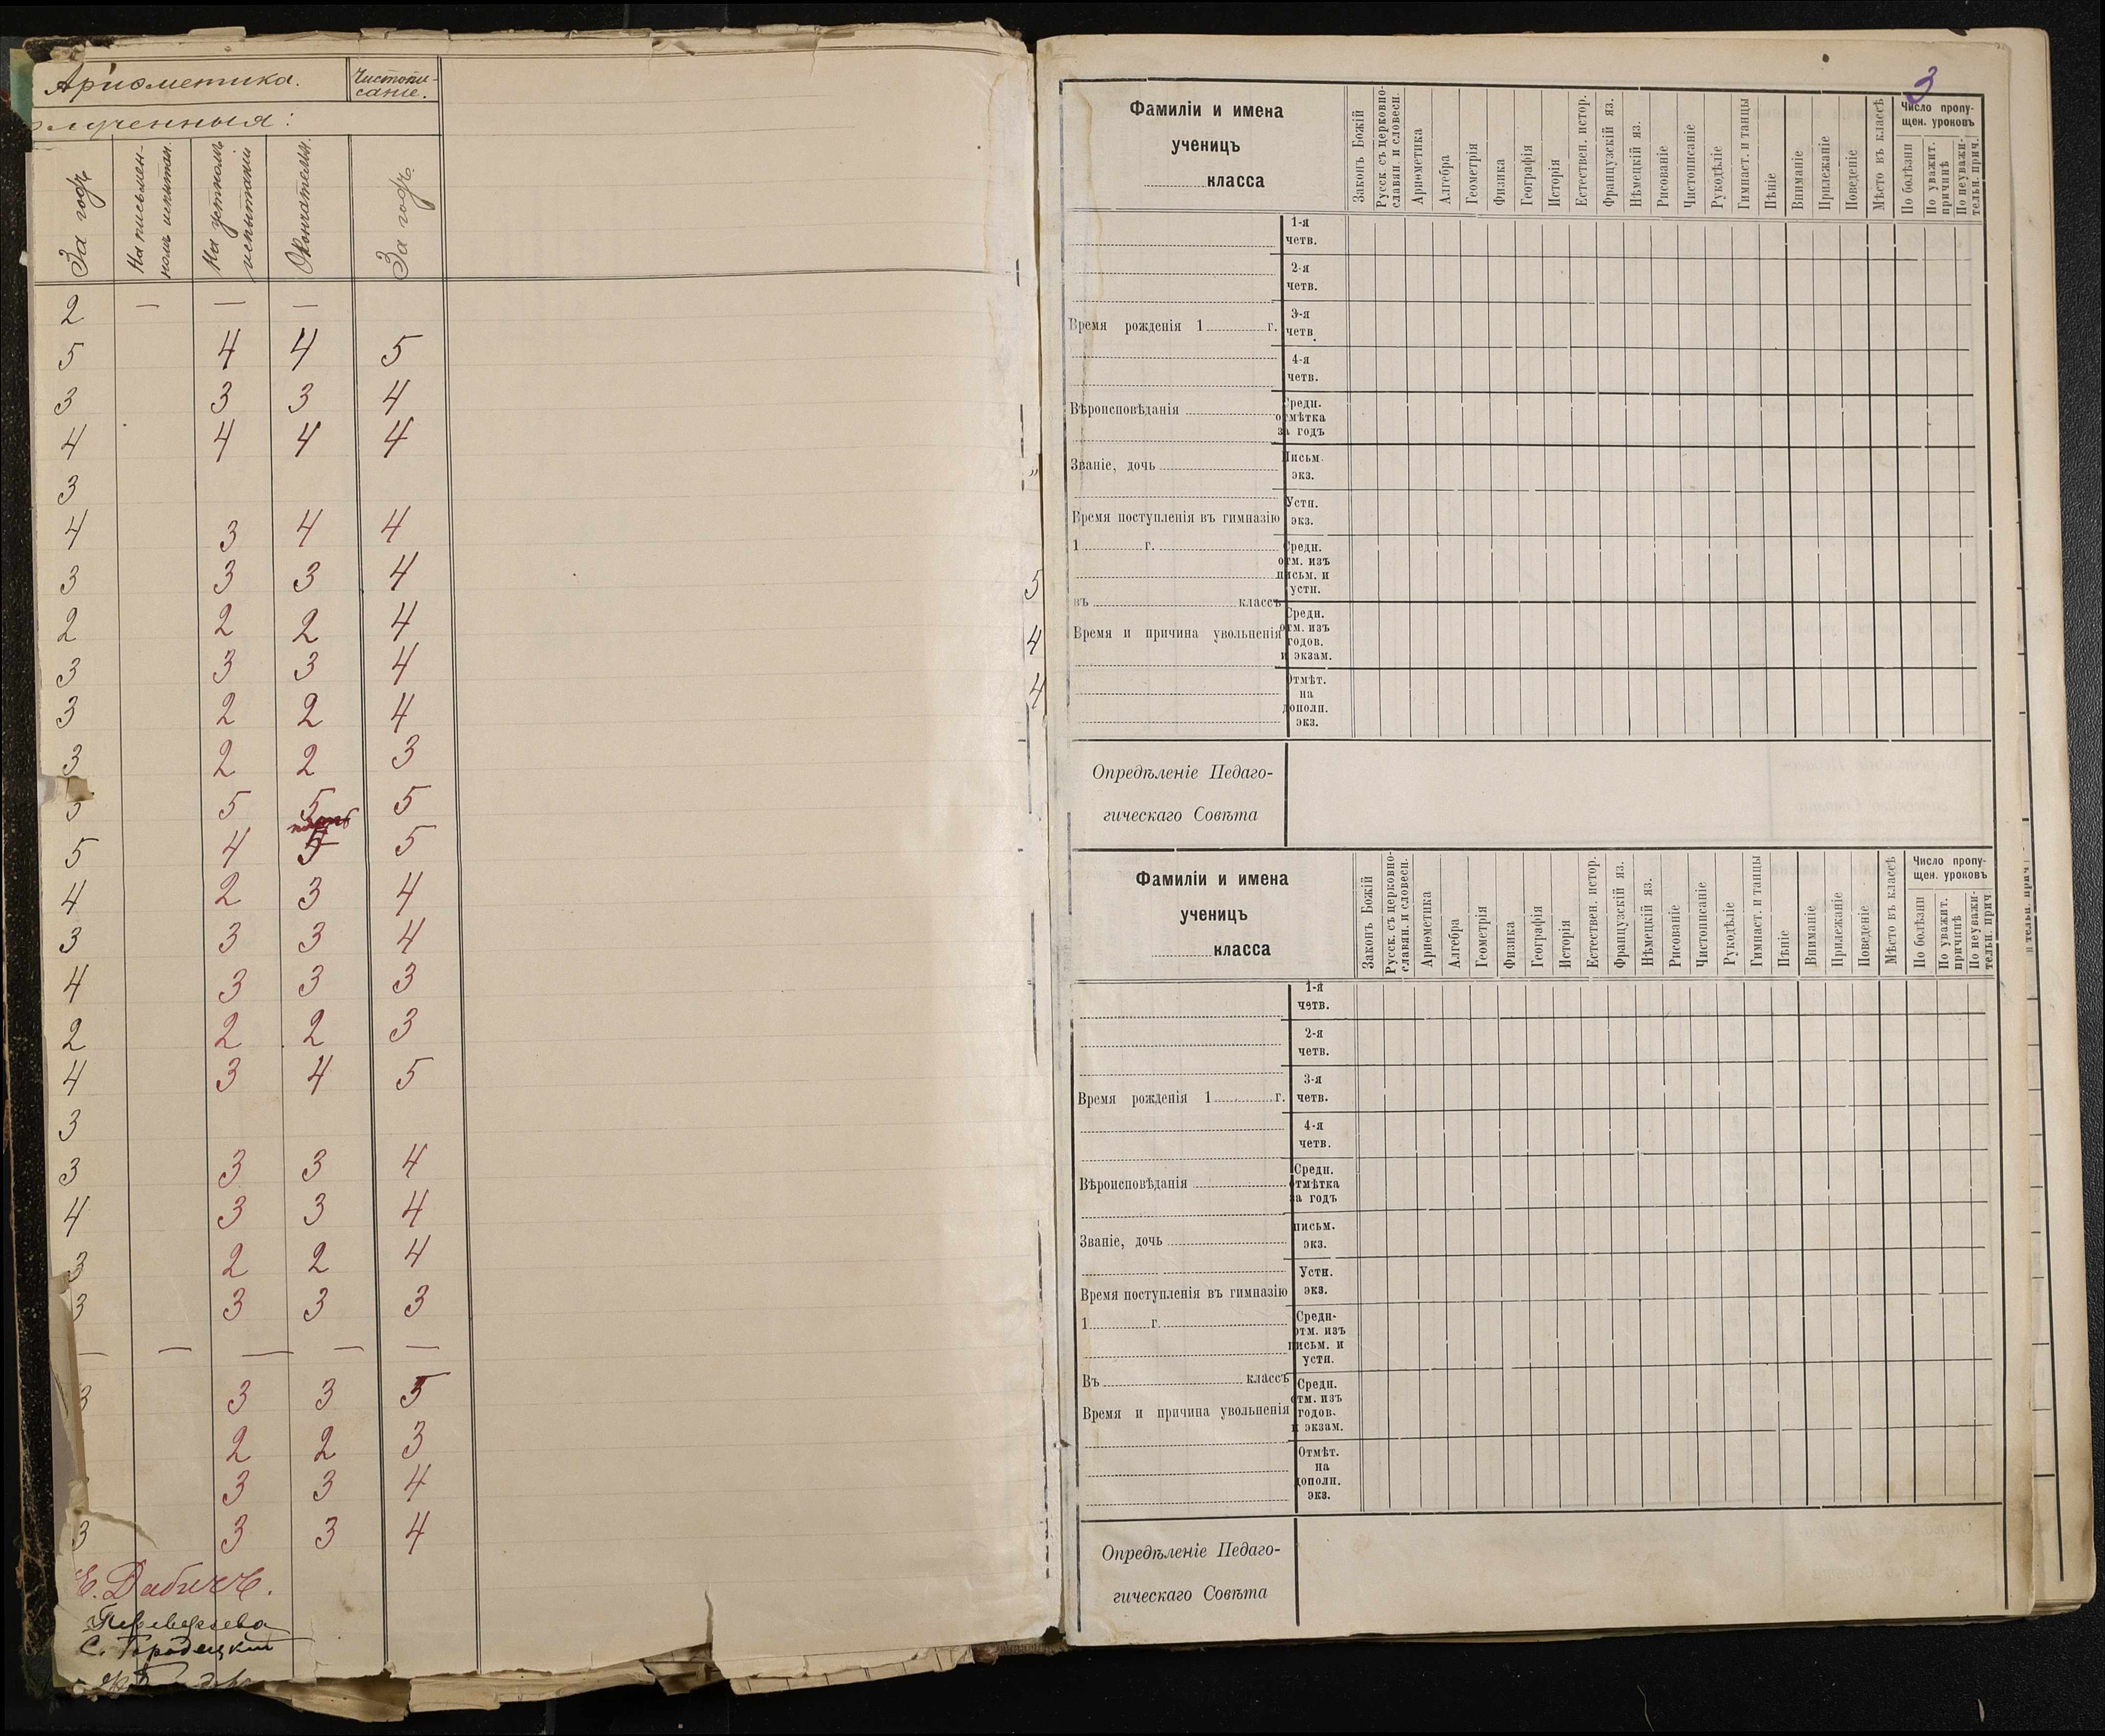 Ариѳметика. Чистопи-
саніе.
лученныя:
За годъ
На письмен-
номъ испытан.
На устномъ
испытаніи
Окончательн.
За годъ
2 — — —
5 4 4 5
3 3 3 4
4 4 4 4
3
4 3 4 4
3 3 3 4
2 2 2 4
3 3 3 4
3 2 2 4
3 2 2 3
5 5 5 5
5 4 5 5
4 2 3 4
3 3 3 4
4 3 3 3
2 2 2 3
4 3 4 5
3
3 3 3 4
4 3 3 4
3 2 2 4
3 3 3 3
— — — — —
3 3 3 5
2 2 3
3 3 4
3 3 3 4
Е. Дабичъ.
С. Городецкій
5
4
4
3
Фамиліи и имена
ученицъ
класса
Законъ Божій
Русск. съ церковно-
славян. и словесн.
Ариѳметика
Алгебра
Геометрія
Физика
Географія
Исторія
Естествен. истор.
Французскій яз.
Нѣмецкій яз.
Рисованіе
Чистописаніе
Рукодѣліе
Гимнаст. и танцы
Пѣніе
Вниманіе
Прилежаніе
Поведеніе
Мѣсто въ классѣ
Число пропу-
щен. уроковъ
По болѣзни
По уважит.
причинѣ
По неуважи-
тельн. прич.
1-я
четв.
2-я
четв.
Время рожденія 1 г.
3-я
четв.
4-я
четв.
Вѣроисповѣданія
Средн.
отмѣтка
за годъ
Званіе, дочь
Письм.
экз.
Время поступленія въ гимназію
Устн.
экз.
1 г.
Средн.
отм. изъ
письм. и
устн.
въ классъ
Время и причина увольненія
Средн.
отм. изъ
годов.
и экзам.
Отмѣт.
на
дополн.
экз.
Опредѣленіе Педаго-
гическаго Совѣта
Фамиліи и имена
ученицъ
класса
Законъ Божій
Русск. съ церковно-
славян. и словесн.
Ариѳметика
Алгебра
Геометрія
Физика
Географія
Исторія
Естествен. истор.
Французскій яз.
Нѣмецкій яз.
Рисованіе
Чистописаніе
Рукодѣліе
Гимнаст. и танцы
Пѣніе
Вниманіе
Прилежаніе
Поведеніе
Мѣсто въ классѣ
Число пропу-
щен. уроковъ
По болѣзни
По уважит.
причинѣ
По неуважи-
тельн. прич
1-я
четв.
2-я
четв.
Время рожденія 1 г.
3-я
четв.
4-я
четв.
Вѣроисповѣданія
Средн.
отмѣтка
за годъ
Званіе, дочь
письм.
экз.
Время поступленія въ гимназію
Устн.
экз.
1 г.
Средн-
отм. изъ
письм. и
устн.
Въ классъ
Время и причина увольненія
Средн.
отм. изъ
годов.
и экзам.
Отмѣт.
на
дополн.
экз.
Опредѣленіе Педаго-
гическаго Совѣта